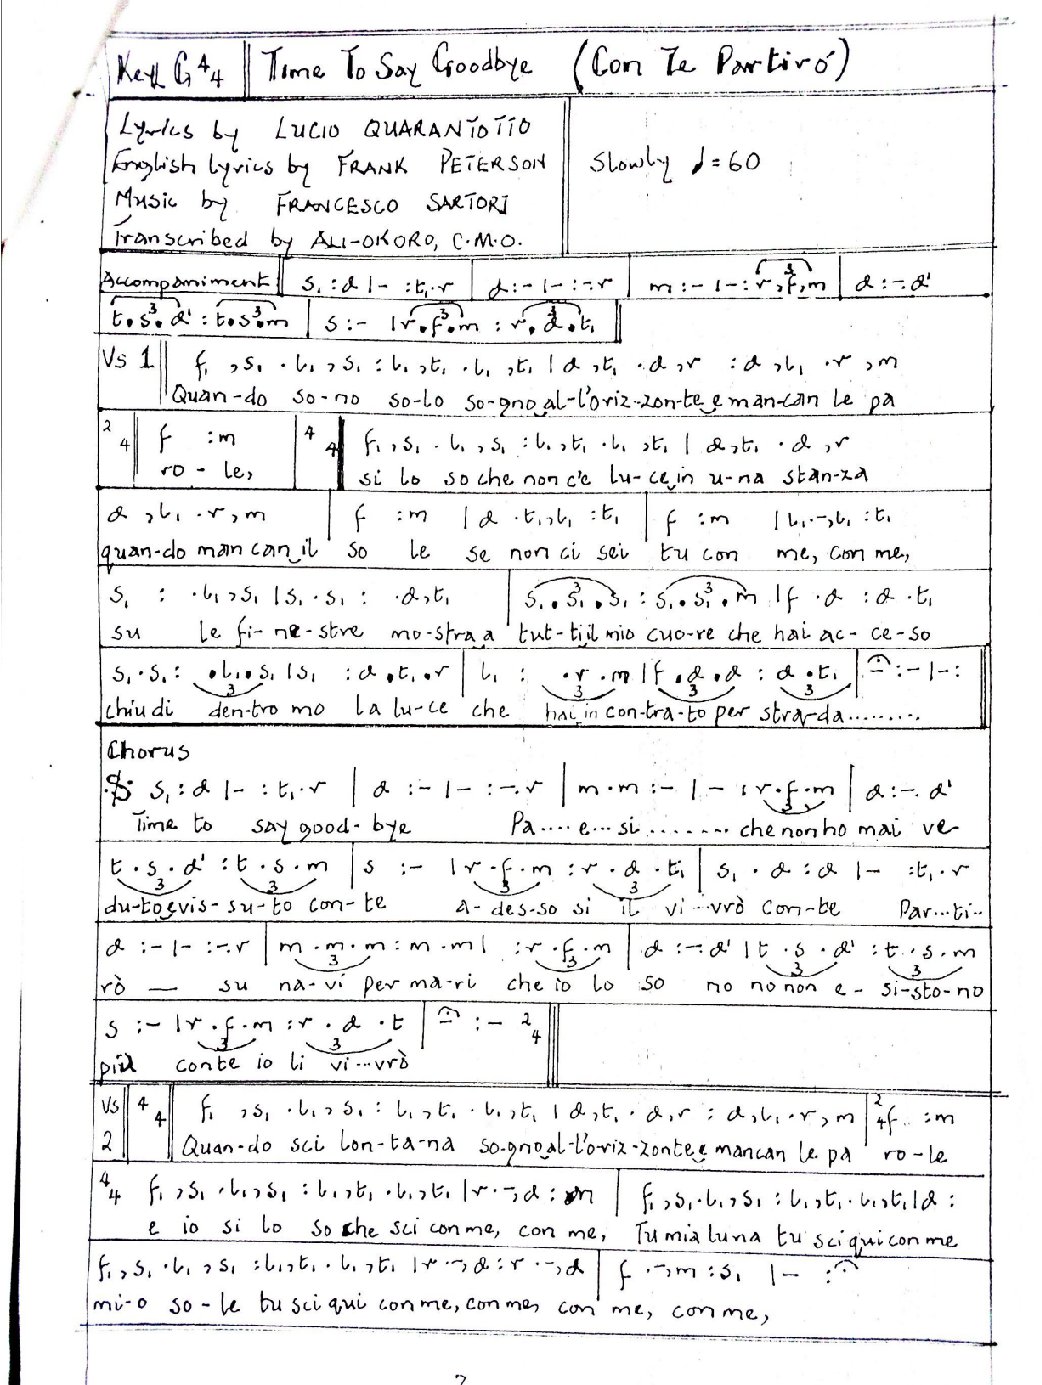 Key G 4/4 Time To Say Goodbye (Con Te Partiró)
Lyrics by LUCIO QUARANTOTTO
English lyrics by FRANK PETERSON
Slowly ♩=60
Music by FRANCESCO SARTORI
Transcribed by ALI-OKORO, C.M.O.
Accompaniment s₁ :d |- :t₁.r | d :- |- :-.r | m :- |- :r,f,m | d :-.d'
t.s.d' :t.s.m | s :- |r.f.m :r.d.t₁
Vs 1 f₁ ,s₁ .l₁ ,s₁ :l₁ ,t₁ .l₁ ,t₁ |d ,t₁ .d ,r :d ,l₁ .r ,m
Quan-do so-no so-lo so-gno al-l'oriz-zon-te e man-can le pa
2/4 f :m 4/4 f₁ ,s₁ .l₁ ,s₁ :l₁ ,t₁ .l₁ ,t₁ | d ,t₁ .d ,r
ro-le, si lo so che non c'e lu-ce in u-na stan-za
d ,l₁ .r ,m | f :m |d .t₁,l₁ :t₁ | f :m |l₁.-,l₁ :t₁
quan-do man can il so le se non ci sei tu con me, con me,
s₁ : .l₁,s₁ |s₁.s₁ : .d,t₁ | s₁.s₁.s₁ :s₁.s₁.m |f .d :d .t₁
su le fi-ne-stre mo-stra a tut-ti il mio cuo-re che hai ac-ce-so
s₁.s₁ : .l₁.s₁ |s₁ :d.t₁.r | l₁ : .r.m |f.d.d :d.t₁ | :- |- :
chiu di den-tro mo la lu-ce che hai in con-tra-to per stra-da.........
Chorus
s₁ :d |- :t₁.r | d :- |- :-.r | m.m :- |- :r.f.m | d :-.d'
Time to say good-bye Pa....e...si ........ che non ho mai ve-
t.s.d' :t.s.m | s :- |r.f.m :r.d.t₁ | s₁.d :d |- :t₁.r
du-to e vis-su-to con-te A-des-so si il vi...vrò con-te Par...ti..
d :- |- :-.r | m.m.m :m.m | :r.f.m | d :-.d' |t.s.d' :t.s.m
rò — su na-vi per ma-ri che io lo so no no non e-si-sto-no
s :- |r.f.m :r.d.t | :- 2/4
più con te io li vi...vrò
Vs 2 4/4 f₁ ,s₁ .l₁ ,s₁ :l₁ ,t₁ .l₁ ,t₁ |d ,t₁ .d ,r :d ,l₁ .r ,m | 2/4 f :m
Quan-do sei lon-ta-na so-gno al-l'o-riz-zonte e mancan le pa ro-le
4/4 f₁ ,s₁ .l₁ ,s₁ :l₁ ,t₁ .l₁ ,t₁ |r .-,d :m | f₁ ,s₁ .l₁ ,s₁ :l₁ ,t₁ .l₁ ,t₁ |d :
e io si lo so che sei con me, con me, Tu mia luna tu sei qui con me
f₁ ,s₁ .l₁ ,s₁ :l₁ ,t₁ .l₁ ,t₁ |r .-,d :r .-,d | f .-,m :s₁ |- :
mi-o so-le tu sei qui con me, con me, con me, con me,